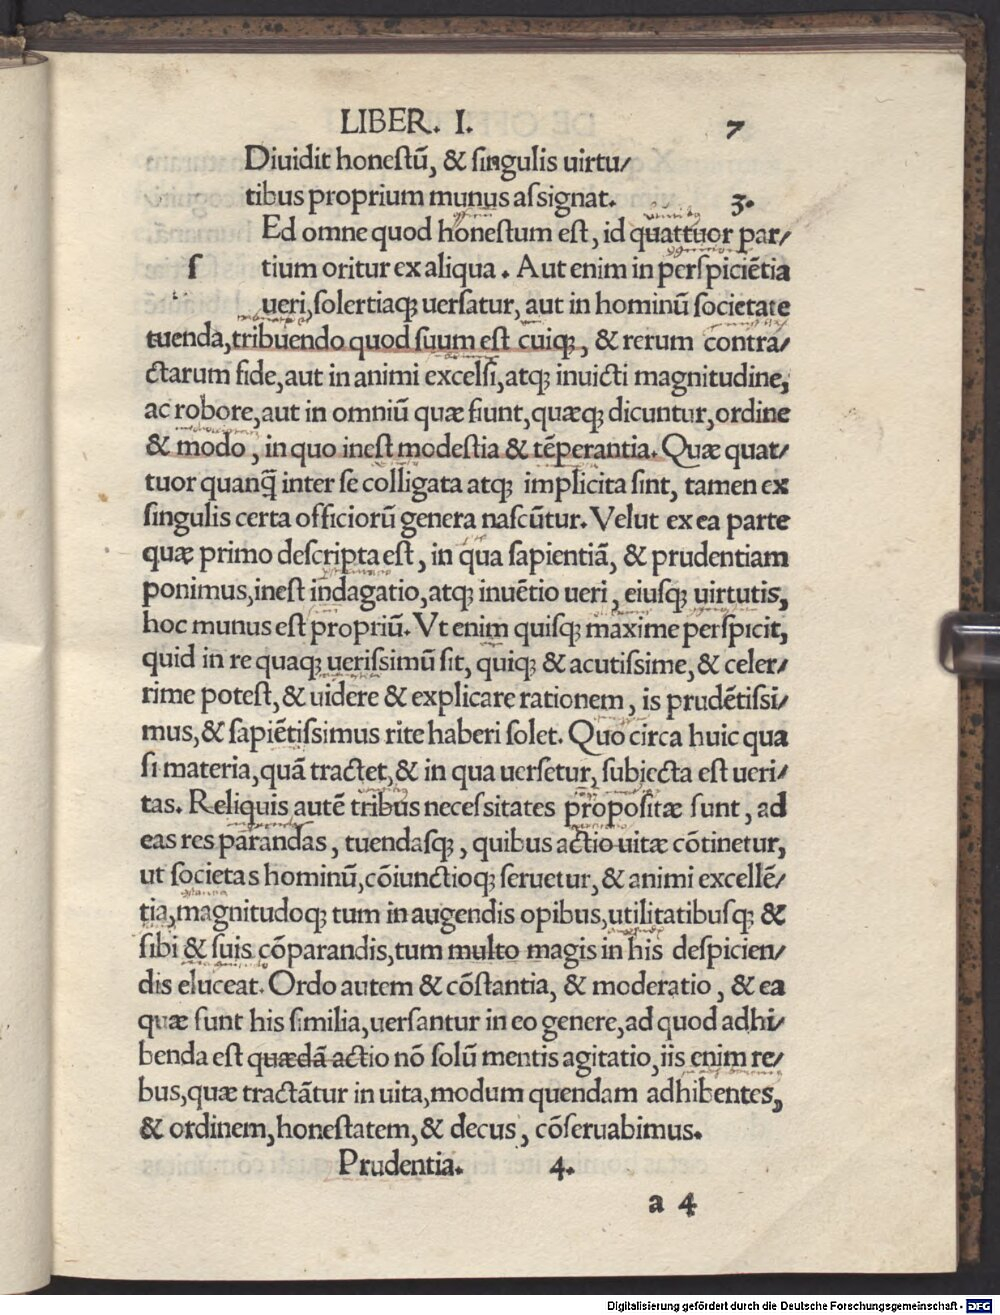 LIBER. I. 7
Diuidit honestū, & ſingulis uirtu/
tibus proprium munus aſsignat. 3.
Ed omne quod honeſtum eſt, id quattuor par/
ſ tium oritur ex aliqua. Aut enim in perſpiciētia
ueri, ſolertiaq; uerſatur, aut in hominū ſocietate
tuenda, tribuendo quod ſuum eſt cuiq;, & rerum contra/
ctarum fide, aut in animi excelſi, atq; inuicti magnitudine,
ac robore, aut in omniū quæ fiunt, quæq; dicuntur, ordine
& modo, in quo ineſt modeſtia & tēperantia. Quæ quat/
tuor quanq̃ inter ſe colligata atq; implicita ſint, tamen ex
ſingulis certa officiorū genera naſcūtur. Velut ex ea parte
quæ primo deſcripta eſt, in qua ſapientiā, & prudentiam
ponimus, ineſt indagatio, atq; inuētio ueri, eiuſq; uirtutis,
hoc munus eſt propriū. Vt enim quiſq; maxime perſpicit,
quid in re quaq; ueriſsimū ſit, quiq; & acutiſsime, & celer/
rime poteſt, & uidere & explicare rationem, is prudētiſsi/
mus, & ſapiētiſsimus rite haberi ſolet. Quo circa huic qua
ſi materia, quā tractet, & in qua uerſetur, ſubiecta eſt ueri/
tas. Reliquis autē tribus neceſsitates propoſitæ ſunt, ad
eas res parandas, tuendaſq;, quibus actio uitæ cōtinetur,
ut ſocietas hominū, cōiunctioq; ſeruetur, & animi excellē/
tia, magnitudoq; tum in augendis opibus, utilitatibuſq; &
ſibi & ſuis cōparandis, tum multo magis in his deſpicien/
dis eluceat. Ordo autem & cōſtantia, & moderatio, & ea
quæ ſunt his ſimilia, uerſantur in eo genere, ad quod adhi/
benda eſt quædā actio nō ſolū mentis agitatio, iis enim re/
bus, quæ tractātur in uita, modum quendam adhibentes,
& ordinem, honeſtatem, & decus, cōſeruabimus.
Prudentia. 4.
a 4
Digitalisierung gefördert durch die Deutsche Forschungsgemeinschaft - DFG